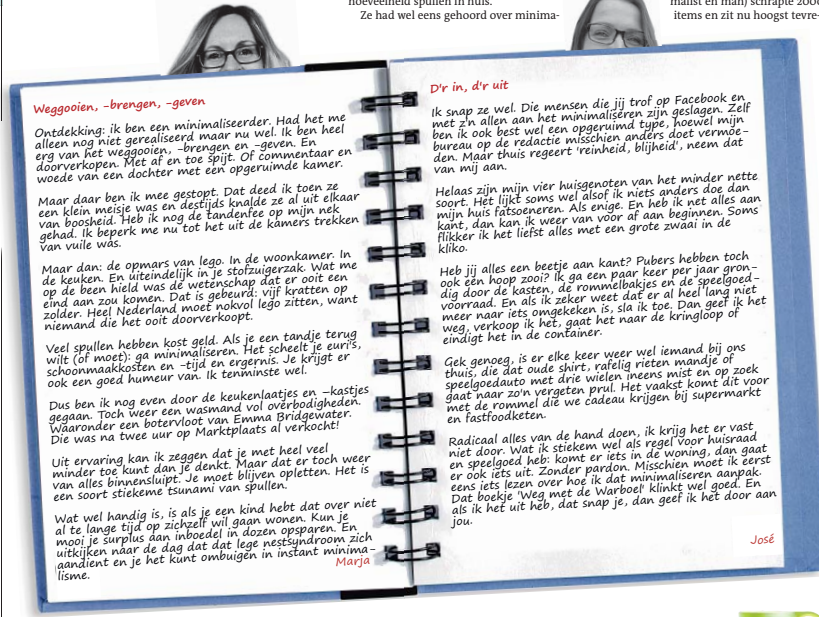 hoeveelheid spullen in huis.
Ze had wel eens gehoord over minima-
malist en man) schrapte 200
items en zit nu hoogst tevre-
Weggooien, -brengen, -geven
Ontdekking: ik ben een minimaliseerder. Had het me
alleen nog niet gerealiseerd maar nu wel. Ik ben heel
erg van het weggooien, -brengen en -geven. En
doorverkopen. Met af en toe spijt. Of commentaar en
woede van een dochter met een opgeruimde kamer.
Maar daar ben ik mee gestopt. Dat deed ik toen ze
een klein meisje was en destijds knalde ze al uit elkaar
van boosheid. Heb ik nog de tandenfee op mijn nek
gehad. Ik beperk me nu tot het uit de kamers trekken
van vuile was.
Maar dan: de opmars van lego. In de woonkamer. In
de keuken. En uiteindelijk in je stofzuigerzak. Wat me
op de been hield was de wetenschap dat er ooit een
eind aan zou komen. Dat is gebeurd: vijf kratten op
zolder. Heel Nederland moet nokvol lego zitten, want
niemand die het ooit doorverkoopt.
Veel spullen hebben kost geld. Als je een tandje terug
wilt (of moet): ga minimaliseren. Het scheelt je euri's,
schoonmaakkosten en -tijd en ergernis. Je krijgt er
ook een goed humeur van. Ik tenminste wel.
Dus ben ik nog even door de keukenlaatjes en -kastjes
gegaan. Toch weer een wasmand vol overbodigheden.
Waaronder een botervloot van Emma Bridgewater.
Die was na twee uur op Marktplaats al verkocht!
Uit ervaring kan ik zeggen dat je met heel veel
minder toe kunt dan je denkt. Maar dat er toch weer
van alles binnensluipt. Je moet blijven opletten. Het is
een soort stiekeme tsunami van spullen.
Wat wel handig is, is als je een kind hebt dat over niet
al te lange tijd op zichzelf wil gaan wonen. Kun je
mooi je surplus aan inboedel in dozen opsparen. En
uitkijken naar de dag dat dat lege nestsyndroom zich
aandient en je het kunt ombuigen in instant minima-
lisme.
Marja
D'r in, d'r uit
Ik snap ze wel. Die mensen die jij trof op Facebook en
met z'n allen aan het minimaliseren zijn geslagen. Zelf
ben ik ook best wel een opgeruimd type, hoewel mijn
bureau op de redactie misschien anders doet vermoe-
den. Maar thuis regeert 'reinheid, blijheid', neem dat
van mij aan.
Helaas zijn mijn vier huisgenoten van het minder nette
soort. Het lijkt soms wel alsof ik niets anders doe dan
mijn huis fatsoeneren. Als enige. En heb ik net alles aan
kant, dan kan ik weer van voor af aan beginnen. Soms
flikker ik het liefst alles met een grote zwaai in de
kliko.
Heb jij alles een beetje aan kant? Pubers hebben toch
ook een hoop zooi? Ik ga een paar keer per jaar gron-
dig door de kasten, de rommelbakjes en de speelgoed-
voorraad. En als ik zeker weet dat er al heel lang niet
meer naar iets omgekeken is, sla ik toe. Dan geef ik het
weg, verkoop ik het, gaat het naar de kringloop of
eindigt het in de container.
Gek genoeg, is er elke keer weer wel iemand bij ons
thuis, die dat oude shirt, rafelig rieten mandje of
speelgoedauto met drie wielen ineens mist en op zoek
gaat naar zo'n vergeten prul. Het vaakst komt dit voor
met de rommel die we cadeau krijgen bij supermarkt
en fastfoodketen.
Radicaal alles van de hand doen, ik krijg het er vast
niet door. Wat ik stiekem wel als regel voor huisraad
en speelgoed heb: komt er iets in de woning, dan gaat
er ook iets uit. Zonder pardon. Misschien moet ik eerst
eens iets lezen over hoe ik dat minimaliseren aanpak.
Dat boekje 'Weg met de Warboel' klinkt wel goed. En
als ik het uit heb, dat snap je, dan geef ik het door aan
jou.
José